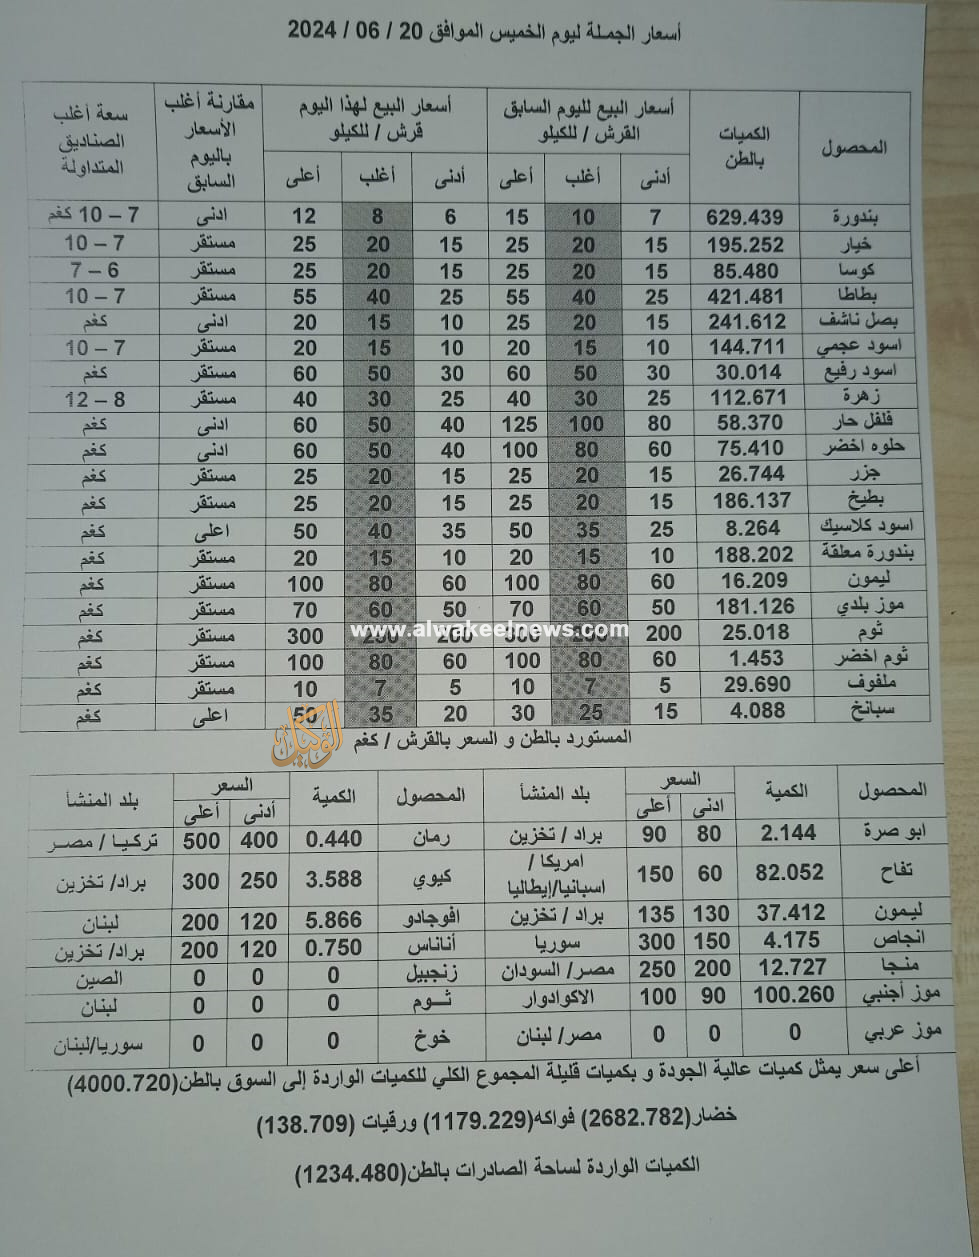 أسعار الجملة ليوم الخميس الموافق 20 / 06 / 2024
المحصول الكميات بالطن أسعار البيع لليوم السابق القرش / للكيلو أسعار البيع لهذا اليوم قرش / للكيلو مقارنة أغلب الأسعار باليوم السابق سعة أغلب الصناديق المتداولة
أدنى أغلب أعلى أدنى أغلب أعلى
بندورة 629.439 7 10 15 6 8 12 ادنى 7 – 10 كغم
خيار 195.252 15 20 25 15 20 25 مستقر 7 – 10
كوسا 85.480 15 20 25 15 20 25 مستقر 6 – 7
بطاطا 421.481 25 40 55 25 40 55 مستقر 7 – 10
بصل ناشف 241.612 15 20 25 10 15 20 ادنى كغم
اسود عجمي 144.711 10 15 20 10 15 20 مستقر 7 – 10
اسود رفيع 30.014 30 50 60 30 50 60 مستقر كغم
زهرة 112.671 25 30 40 25 30 40 مستقر 8 – 12
فلفل حار 58.370 80 100 125 40 50 60 ادنى كغم
حلوه اخضر 75.410 60 80 100 40 50 60 ادنى كغم
جزر 26.744 15 20 25 15 20 25 مستقر كغم
بطيخ 186.137 15 20 25 15 20 25 مستقر كغم
اسود كلاسيك 8.264 25 35 50 35 40 50 اعلى كغم
بندورة معلقة 188.202 10 15 20 10 15 20 مستقر كغم
ليمون 16.209 60 80 100 60 80 100 مستقر كغم
موز بلدي 181.126 50 60 70 50 60 70 مستقر كغم
ثوم 25.018 200 250 300 200 250 300 مستقر كغم
www.alwakeelnews.com
ثوم اخضر 1.453 60 80 100 60 80 100 مستقر كغم
ملفوف 29.690 5 7 10 5 7 10 مستقر كغم
سبانخ 4.088 15 25 30 20 35 50 اعلى كغم
الوكيل
المستورد بالطن و السعر بالقرش / كغم
المحصول الكمية السعر بلد المنشأ المحصول الكمية السعر بلد المنشأ
ادنى أعلى أدنى أعلى
ابو صرة 2.144 80 90 براد / تخزين رمان 0.440 400 500 تركيا / مصر
تفاح 82.052 60 150 امريكا / اسبانيا/إيطاليا كيوي 3.588 250 300 براد/ تخزين
ليمون 37.412 130 135 براد / تخزين افوجادو 5.866 120 200 لبنان
انجاص 4.175 150 300 سوريا أناناس 0.750 120 200 براد/ تخزين
منجا 12.727 200 250 مصر/ السودان زنجبيل 0 0 0 الصين
موز أجنبي 100.260 90 100 الاكوادوار ثوم 0 0 0 لبنان
موز عربي 0 0 0 مصر/ لبنان خوخ 0 0 0 سوريا/لبنان
أعلى سعر يمثل كميات عالية الجودة و بكميات قليلة المجموع الكلي للكميات الواردة إلى السوق بالطن(4000.720)
خضار(2682.782) فواكه(1179.229) ورقيات (138.709)
الكميات الواردة لساحة الصادرات بالطن(1234.480)